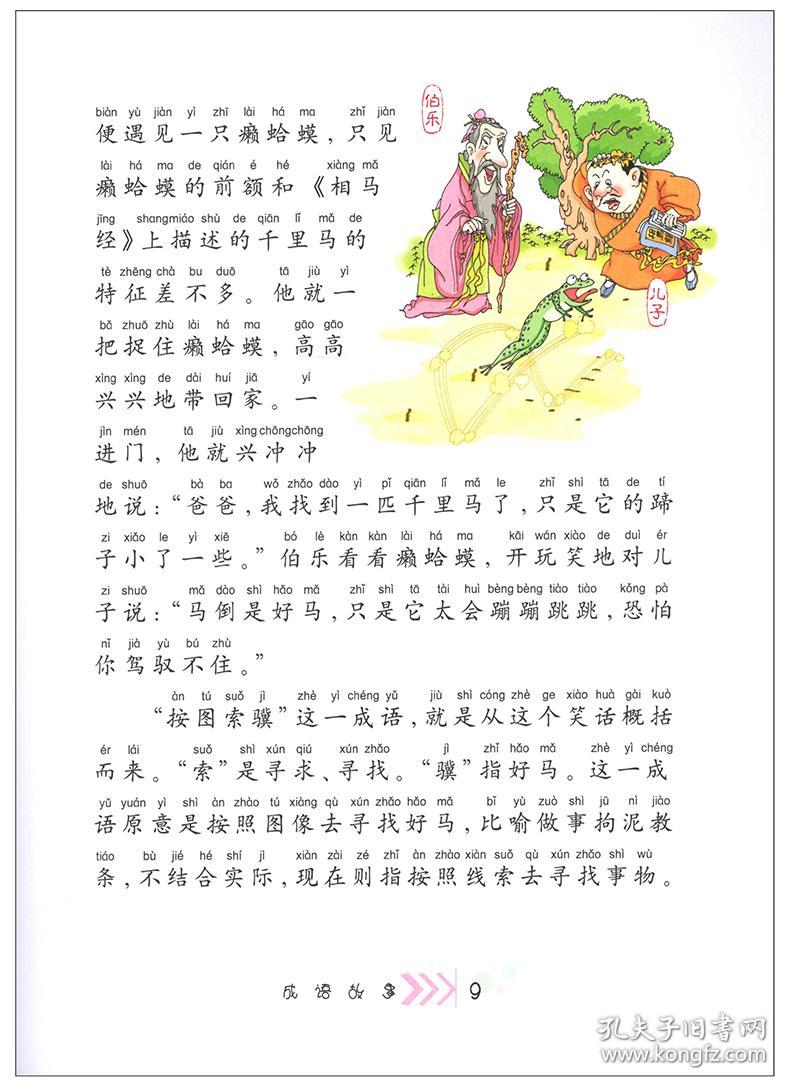 biàn yù jiàn yì zhī lài há ma zhǐ jiàn
便遇见一只癞蛤蟆，只见
lài há ma de qián é hé xiàng mǎ
癞蛤蟆的前额和《相马
jīng shangmiáo shù de qiān lǐ mǎ de
经》上描述的千里马的
tè zhēng chà bu duō tā jiù yì
特征差不多。他就一
bǎ zhuō zhù lài há ma gāo gāo
把捉住癞蛤蟆，高高
xìng xìng de dài huí jiā yí
兴兴地带回家。一
jìn mén tā jiù xìng chōngchōng
进门，他就兴冲冲
de shuō bà ba wǒ zhǎo dào yì pǐ qiān lǐ mǎ le zhǐ shì tā de tí
地说：“爸爸，我找到一匹千里马了，只是它的蹄
zi xiǎo le yì xiē bó lè kàn kàn lài há ma kāi wán xiào de duì ér
子小了一些。”伯乐看看癞蛤蟆，开玩笑地对儿
zi shuō mǎ dào shì hǎo mǎ zhǐ shì tā tài huì bèng bèng tiào tiào kǒng pà
子说：“马倒是好马，只是它太会蹦蹦跳跳，恐怕
nǐ jià yù bú zhù
你驾驭不住。”
àn tú suǒ jì zhè yì chéng yǔ jiù shì cóng zhè ge xiào huà gài kuò
“按图索骥”这一成语，就是从这个笑话概括
ér lái suǒ shì xún qiú xún zhǎo jì zhǐ hǎo mǎ zhè yì chéng
而来。“索”是寻求、寻找。“骥”指好马。这一成
yǔ yuán yì shì àn zhào tú xiàng qù xún zhǎo hǎo mǎ bǐ yù zuò shì jū nì jiào
语原意是按照图像去寻找好马，比喻做事拘泥教
tiáo bù jié hé shí jì xiàn zài zé zhǐ àn zhào xiàn suǒ qù xún zhǎo shì wù
条，不结合实际，现在则指按照线索去寻找事物。
伯乐
儿子
成语故事 9
孔夫子旧书网
www.kongfz.com